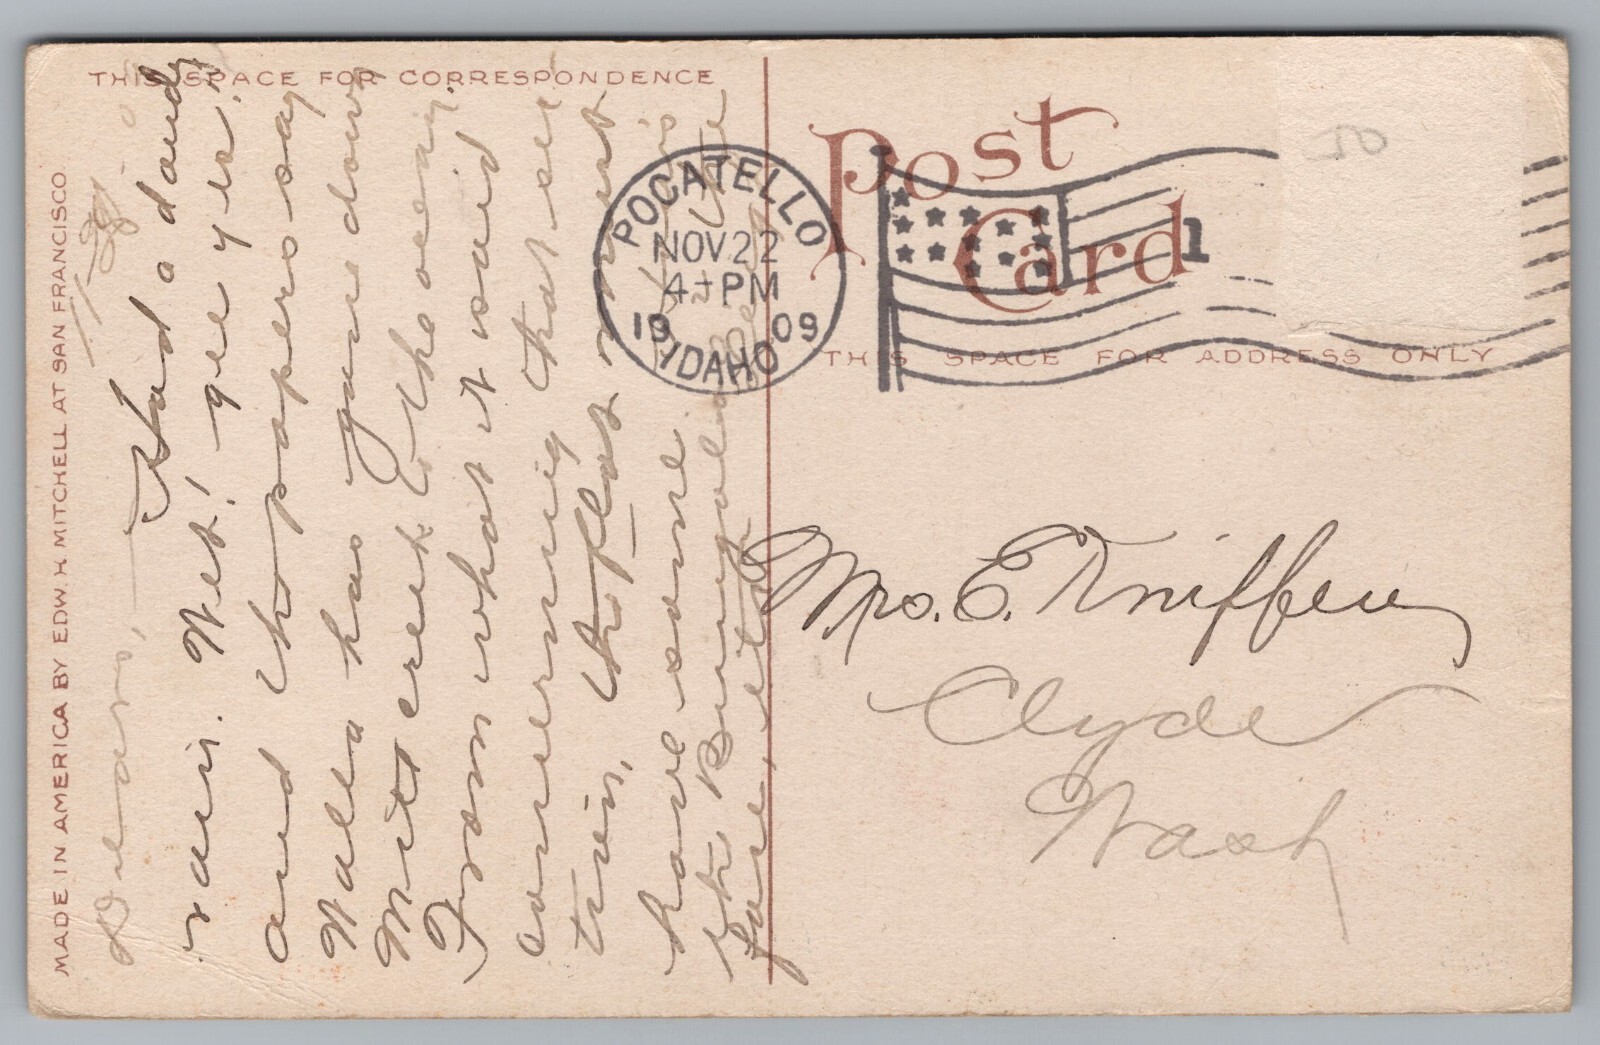 THIS SPACE FOR CORRESPONDENCE
MADE IN AMERICA BY EDW. H. MITCHELL AT SAN FRANCISCO
Post
Card
THIS SPACE FOR ADDRESS ONLY
POCATELLO
NOV 22
4 - PM
1909
IDAHO
1
10
Had a dandy
rain. Wet! gee yes!
and the papers say
Walla has gone down
Mill creek to the ocean.
From what it said
concerning that sec
tion, the flat must
have some
Mrs. E. Kniffen
Clyde
Wash